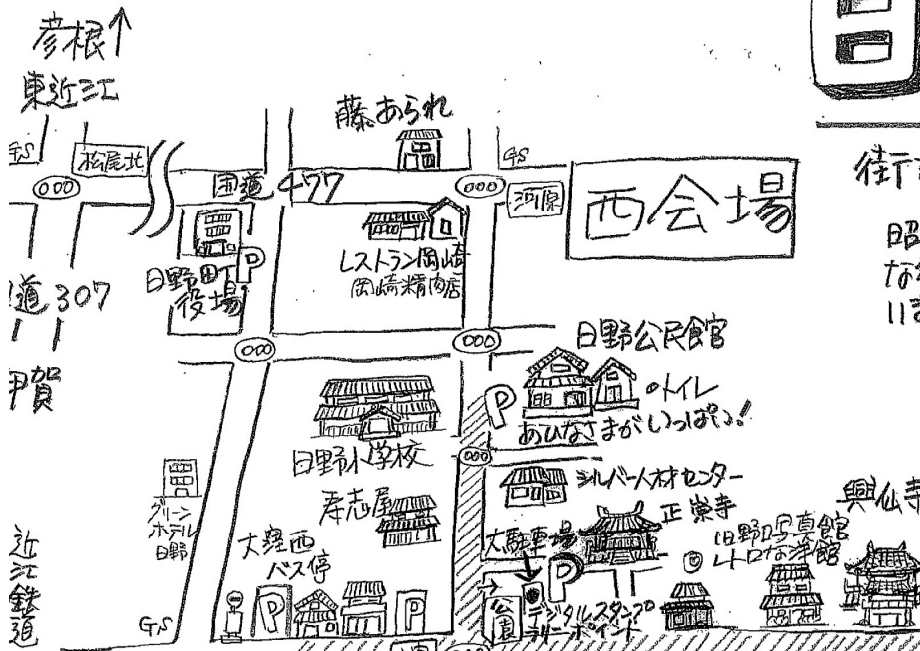 彦根↑
東近江
藤あられ
GS
松尾北
国道477
GS
河原
西会場
日野町
役場
P
レストラン岡崎
岡崎精肉店
道307
日野公民館
P
トイレ
おひなさまがいっぱい!
甲賀
日野小学校
シルバー人材センター
寿志屋
正崇寺
興仙寺
グリーン
ホテル
日野
大窪西
バス停
大駐車場
P
旧野田写真館
レトロな洋館
近江鉄道
GS
P
P
公園
デジタルスタンプ
ラリーポイント